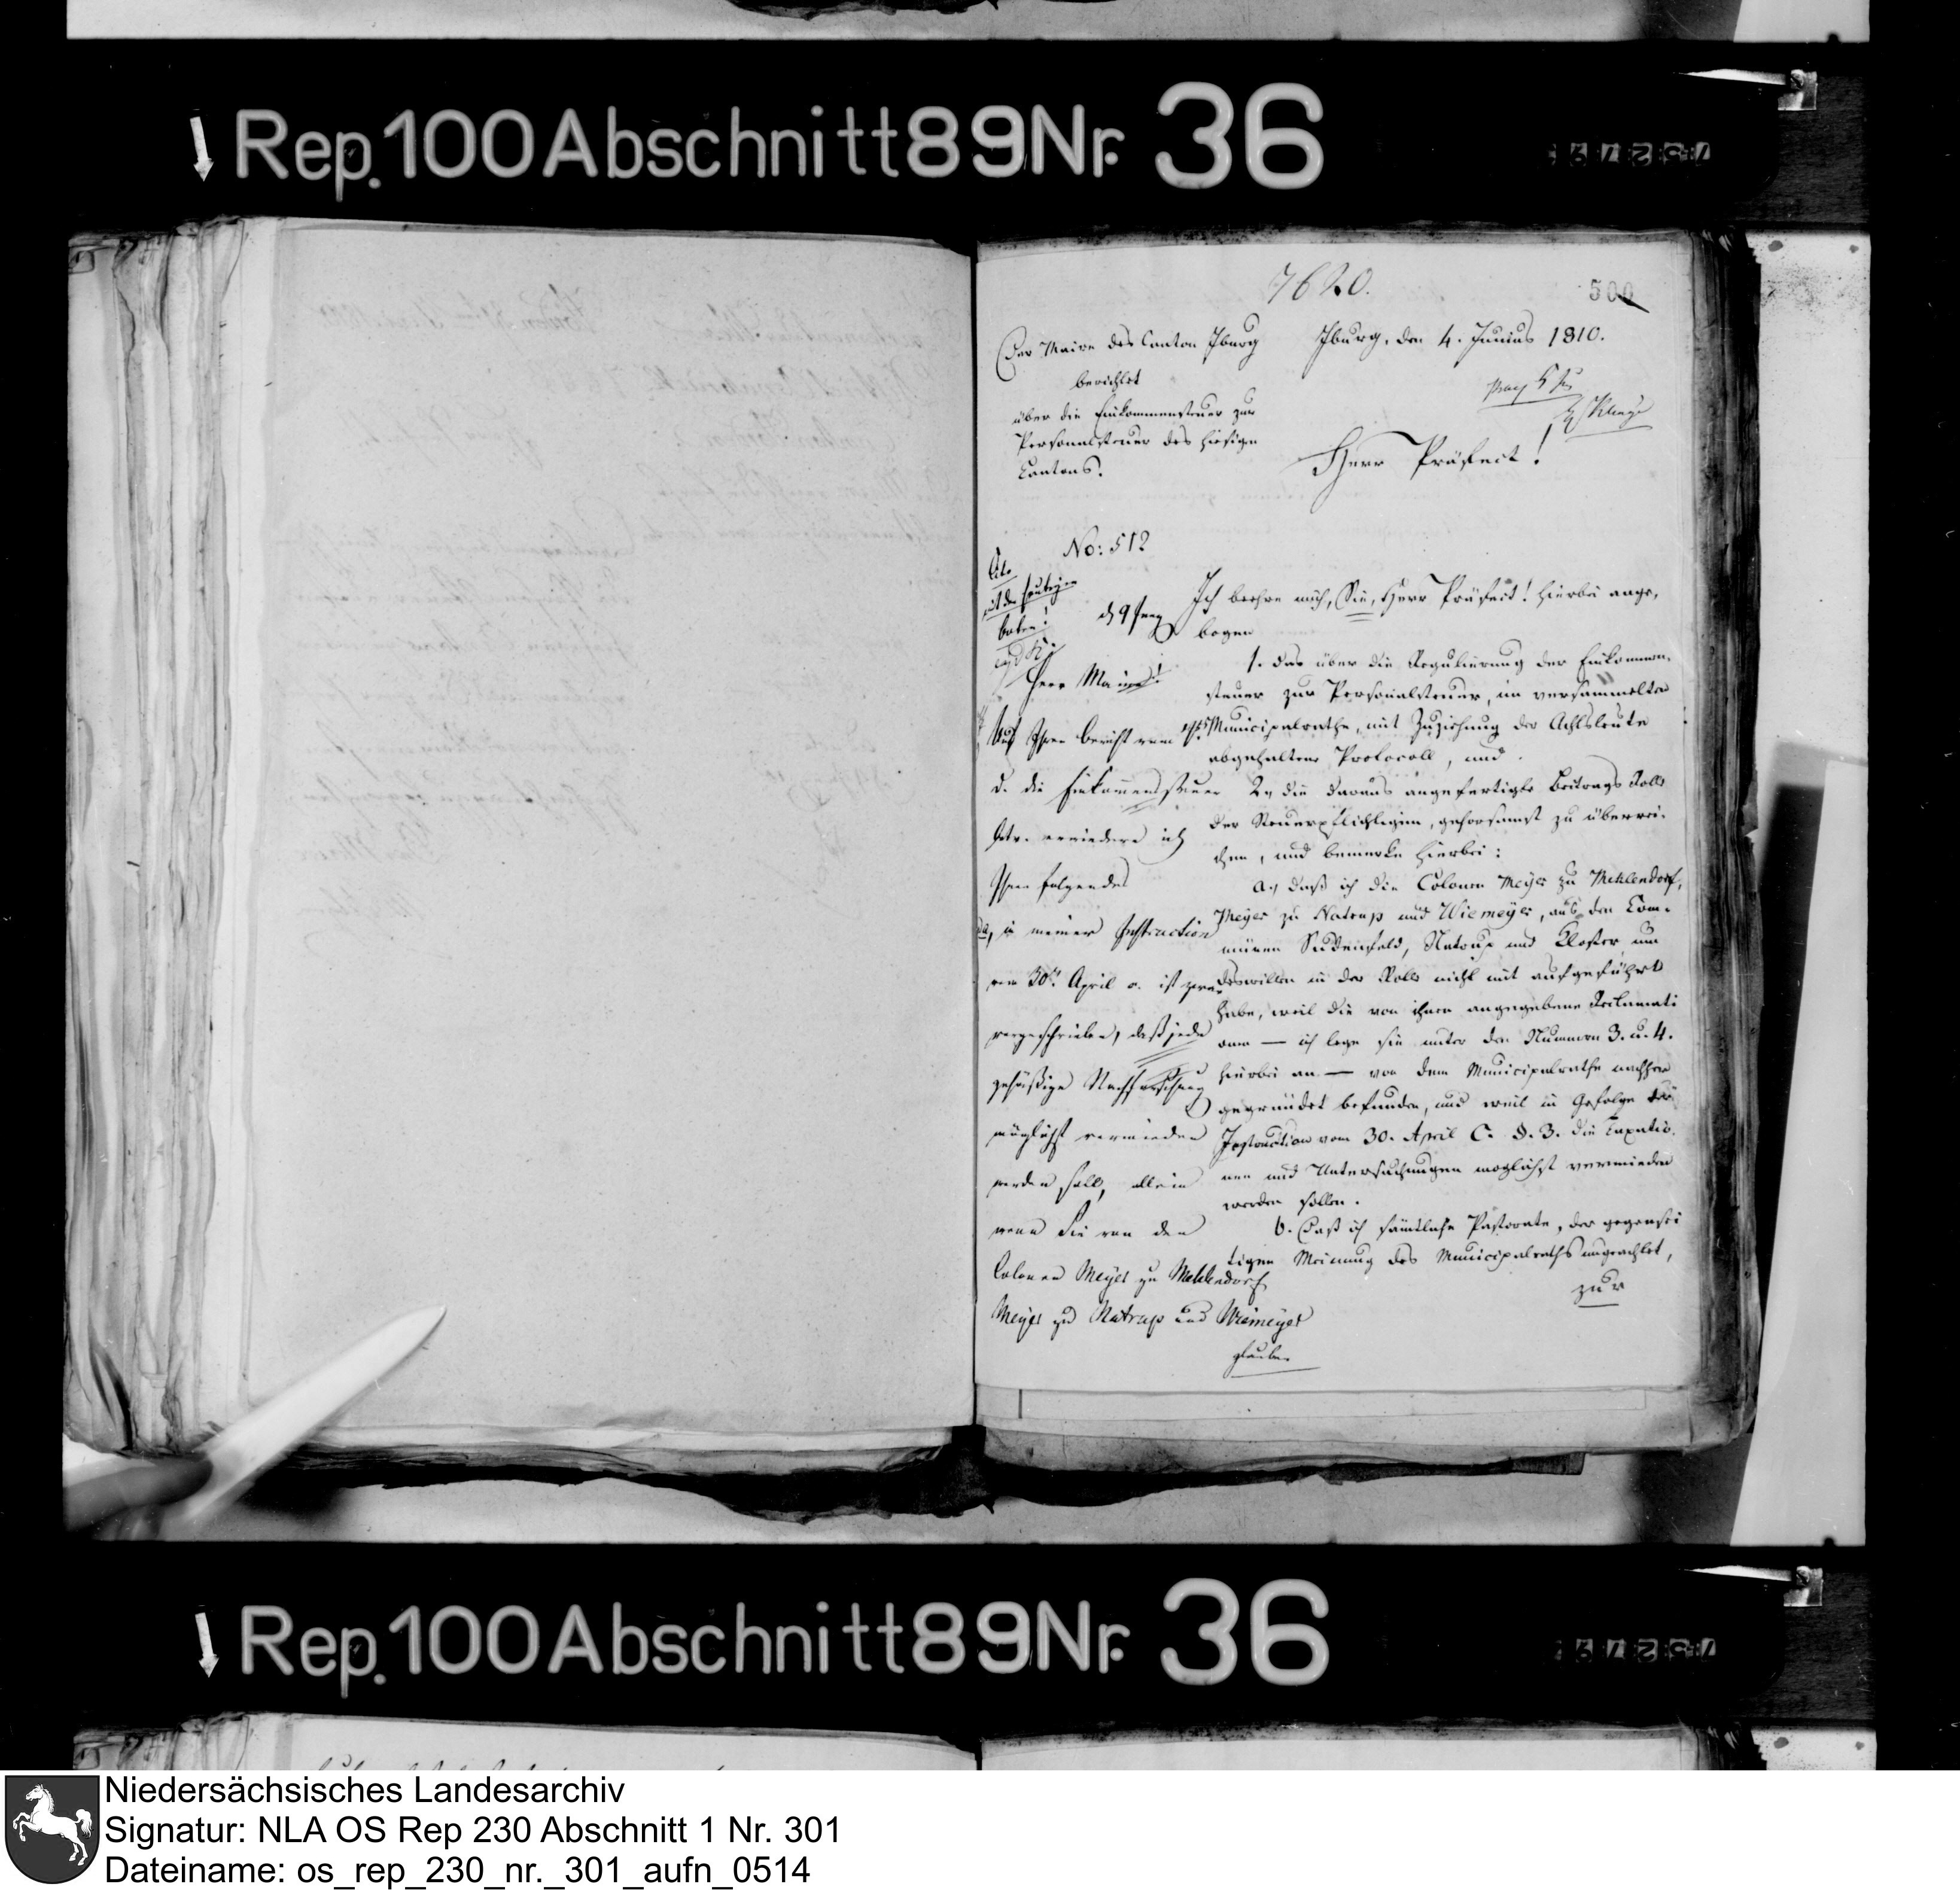 Rep. 100 Abschnitt 89 Nr. 36
7620.
500
Der Maire des Canton Iburg
berichtet
über die Einkommensteuer zur
Personalsteuer des hiesigen
Cantons.
Iburg, den 4. Junius 1810.
Herr Präfect!
No: 512
Ich beehre mich, Sie, Herr Präfect! hierbei ange-
bogen
1. das über die Regulierung der Einkommen-
steuer zur Personalsteuer, im versammelten
Municipalrathe, mit Zuziehung der Achtsleute
abgehaltene Protocoll, und
2, die daraus angefertigte Beitrags Rolle
der Steuerpflichtigen, gehorsamst zu überrei-
chen, und bemerke hierbei:
a, daß ich die Colonen Meyer zu Mehlendorf,
Meyer zu Natrup und Wiemeyer, aus den Com-
munen Sudenfeld, Natrup und Kloster um
deswillen in der Rolle nicht mit aufgeführt
habe, weil die von ihnen angegebene Reclamati
onen — ich lege sie unter den Nummern 3. u. 4.
hierbei an — von dem Municipalrathe nachher
gegründet befunden, und weil in Gefolge der
Instruction vom 30. April C. §. 3. die Taxatio-
nen und Untersuchungen möglichst vermieden
werden sollen.
b. Daß ich sämtliche Pastorate, der gegensei
tigen Meinung des Municipalraths ungeachtet,
zur
Cito
mit der heutigen
boten!
Herr Maire!
Auf Ihren Bericht vom
d. die Einkommensteuer
betr. erwiedere ich
Ihnen folgendes
a, in meiner Instruction
vom 30t. April c. ist zwar
vorgeschrieben, daß jede
gehäßige Nachforschung
möglichst vermieden
werden soll, allein
wenn Sie von den
Colonen Meyer zu Mehlendorf
Meyer zu Natrup und Wiemeyer
glauben
Rep. 100 Abschnitt 89 Nr. 36
Niedersächsisches Landesarchiv
Signatur: NLA OS Rep 230 Abschnitt 1 Nr. 301
Dateiname: os_rep_230_nr._301_aufn_0514